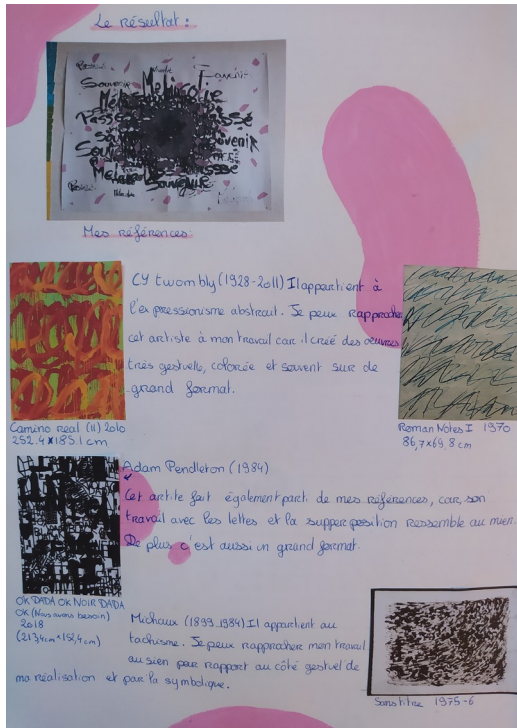 Le résultat :
Souvenir
Melancolie
Passé
Souvenir
Mes références:
CY twombly (1928-2011) Il appartient à
l'expressionisme abstrait. Je peux rapprocher
cet artiste à mon travail car il créé des œuvres
très gestuelle, colorée et souvent sur de
grand format.
Camino real (II) 2010
252.4 x 185.1 cm
Roman Notes I 1970
86,7x69,8 cm
Adam Pendleton (1984)
Cet artite fait également parti de mes références, car son
travail avec les lettes et la supperposition ressemble au mien.
De plus c'est aussi un grand format.
OK DADA OK NOIR DADA
OK (Nous avons besoin)
2018
(213,4cm x 152,4cm)
Michaux (1899_1984) Il appartient au
tachisme. Je peux rapprocher mon travail
au sien par rapport au côté gestuel de
ma réalisation et par la symbolique.
Sans titre 1975-6